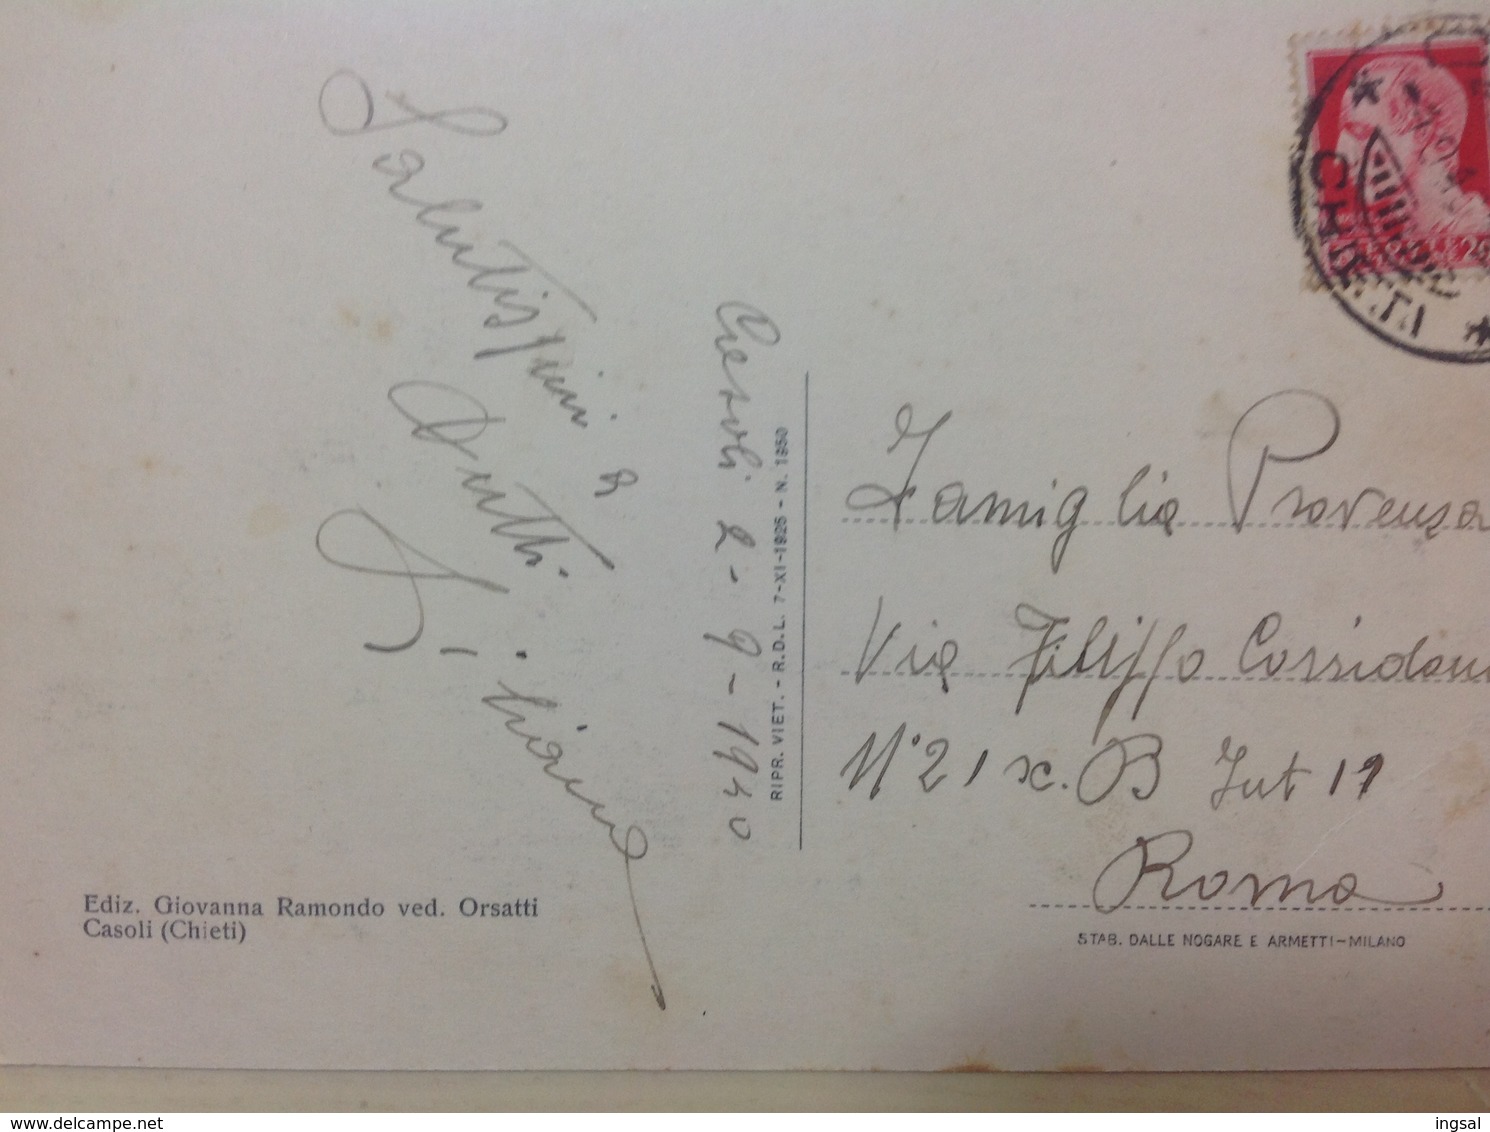 Salutissimi a
tutti
2-9-1940
RIPR. VIET. - R.D.L. 7-XI-1925 - N. 1950
Ediz. Giovanna Ramondo ved. Orsatti
Casoli (Chieti)
CHIETI
Famiglia Provenza
Via Filippo Corridoni
N° 21 sc. B Int 19
Roma
STAB. DALLE NOGARE E ARMETTI-MILANO
delcampe.net
ingsal